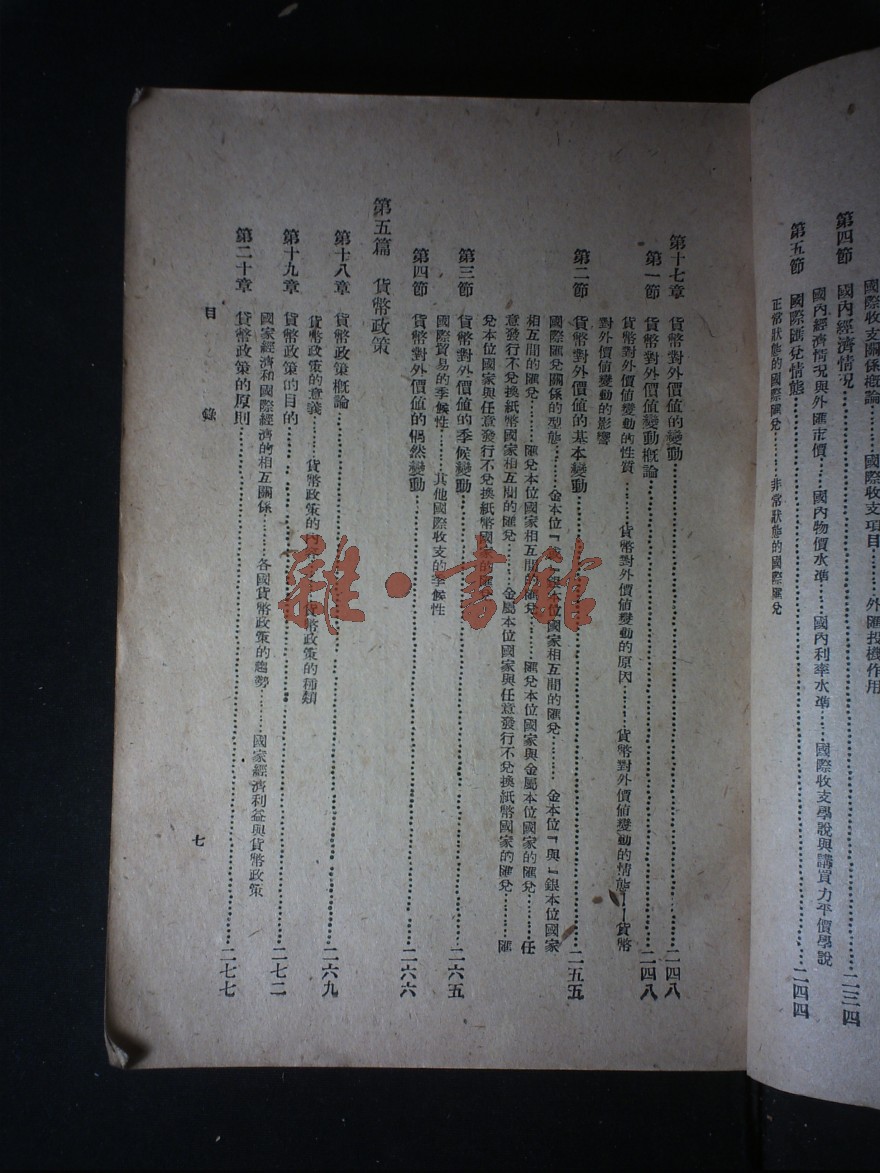 國際收支關係概論……國際收支項目……外匯投機作用
第四節 國內經濟情況……二三四
國內經濟情況與外匯市價……國內物價水準……國內利率水準……國際收支學說與購買力平價學說
第五節 國際匯兌情態……二四四
正常狀態的國際匯兌……非常狀態的國際匯兌
第十七章 貨幣對外價值的變動……二四八
第一節 貨幣對外價值變動概論……二四八
貨幣對外價值變動的性質……貨幣對外價值變動的原因……貨幣對外價值變動的情態——貨幣
對外價值變動的影響
第二節 貨幣對外價值的基本變動……二五五
國際匯兌關係的型態……金本位『或』銀本位國家相互間的匯兌……金本位『與』銀本位國家
相互間的匯兌……匯兌本位國家相互間的匯兌……匯兌本位國家與金屬本位國家的匯兌……任
意發行不兌換紙幣國家相互間的匯兌……金屬本位國家與任意發行不兌換紙幣國家的匯兌……匯
兌本位國家與任意發行不兌換紙幣國家的匯兌
第三節 貨幣對外價值的季候變動……二六五
國際貿易的季候性……其他國際收支的季候性
第四節 貨幣對外價值的偶然變動……二六六
第五篇 貨幣政策
第十八章 貨幣政策概論……二六九
貨幣政策的意義……貨幣政策的……貨幣政策的種類
第十九章 貨幣政策的目的……二七二
國家經濟和國際經濟的相互關係……各國貨幣政策的趨勢……國家經濟利益與貨幣政策
第二十章 貨幣政策的原則……二七七
目錄
七
雜·書館